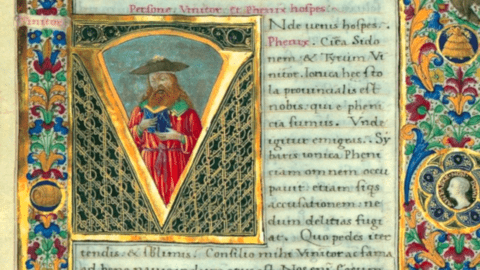 Persone. Vinitor. et Phenix hospes.
Vinitor.
V
Nde uenis hospes.
Phenix. Circa Sido
nem, & Tyrum Vi
nitor. Ionica hec sto
la prouincialis est
nobis, qui e pheni
cia sumus. Vnde
igitur emigras. Sy
baris ionica Pheni
ciam omnem occu
pauit. etiam siqs
accusationem ne
dum delitias fugi
at. Quo pedes iter
tendis & sblimus. Consilio mihi Vinitor ac fama